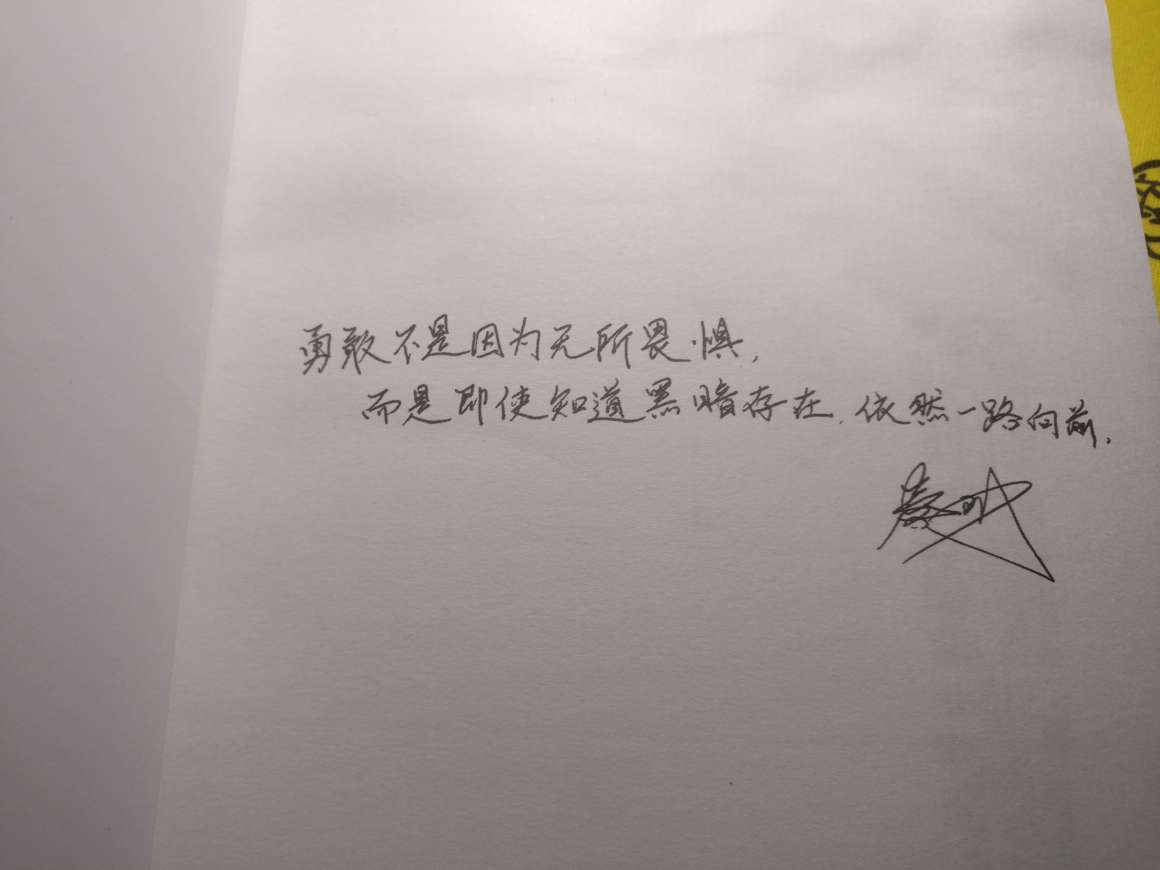 勇敢不是因为无所畏惧,
而是即使知道黑暗存在,依然一路向前.
秦明